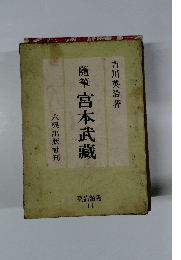 吉川英治著
随筆 宮本武藏
六興出版社刊
11